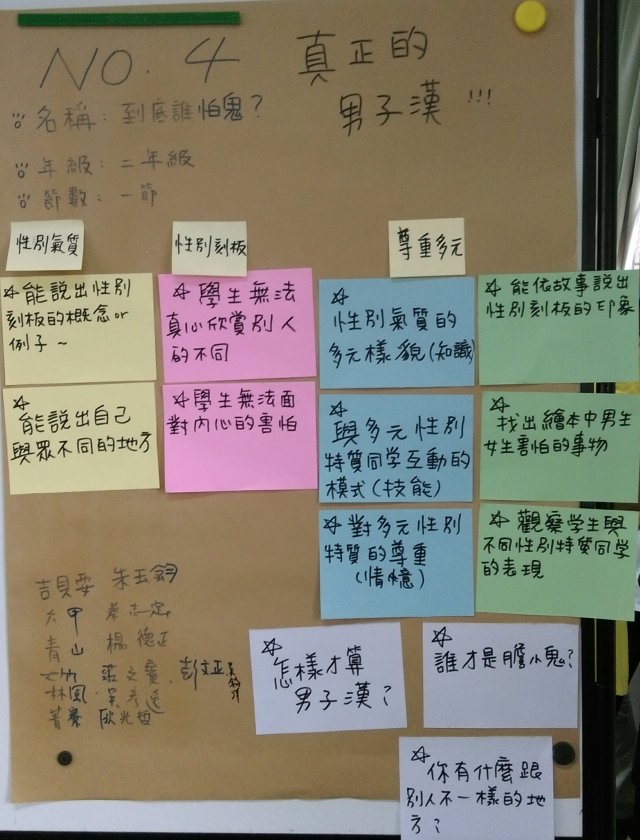 NO. 4
真正的
男子漢!!!
名稱: 到底誰怕鬼?
年級: 二年級
節數: 一節
性別氣質
性別刻板
尊重多元
☆能說出性別
刻板的概念or
例子~
☆能說出自己
與眾不同的地方
☆學生無法
真心欣賞別人
的不同
☆學生無法面
對內心的害怕
☆
性別氣質的
多元樣貌(知識)
☆
與多元性別
特質同學互動的
模式(技能)
☆對多元性別
特質的尊重
(情意)
☆能依故事說出
性別刻板的印象
☆找出繪本中男生
女生害怕的事物
☆觀察學生與
不同性別特質同學
的表現
吉貝耍 朱玉鈞
六甲 蔡志定
青山 楊德正
竹 莊文賓 彭文正
林鳳 吳彥
菁寮 歐光哲
☆
怎樣才算
男子漢?
☆
誰才是膽小鬼?
☆
你有什麼跟
別人不一樣的地
方?